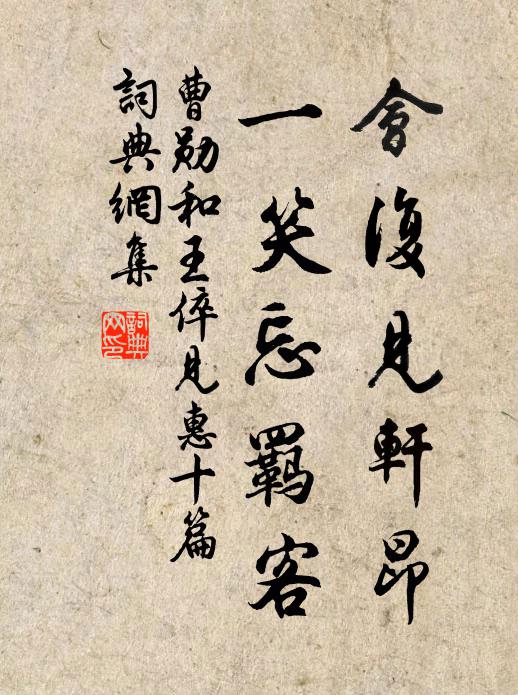 會復見軒昂
一笑忘羈客
曹勛和王倅見惠十篇
詞典網集
詞典
网印